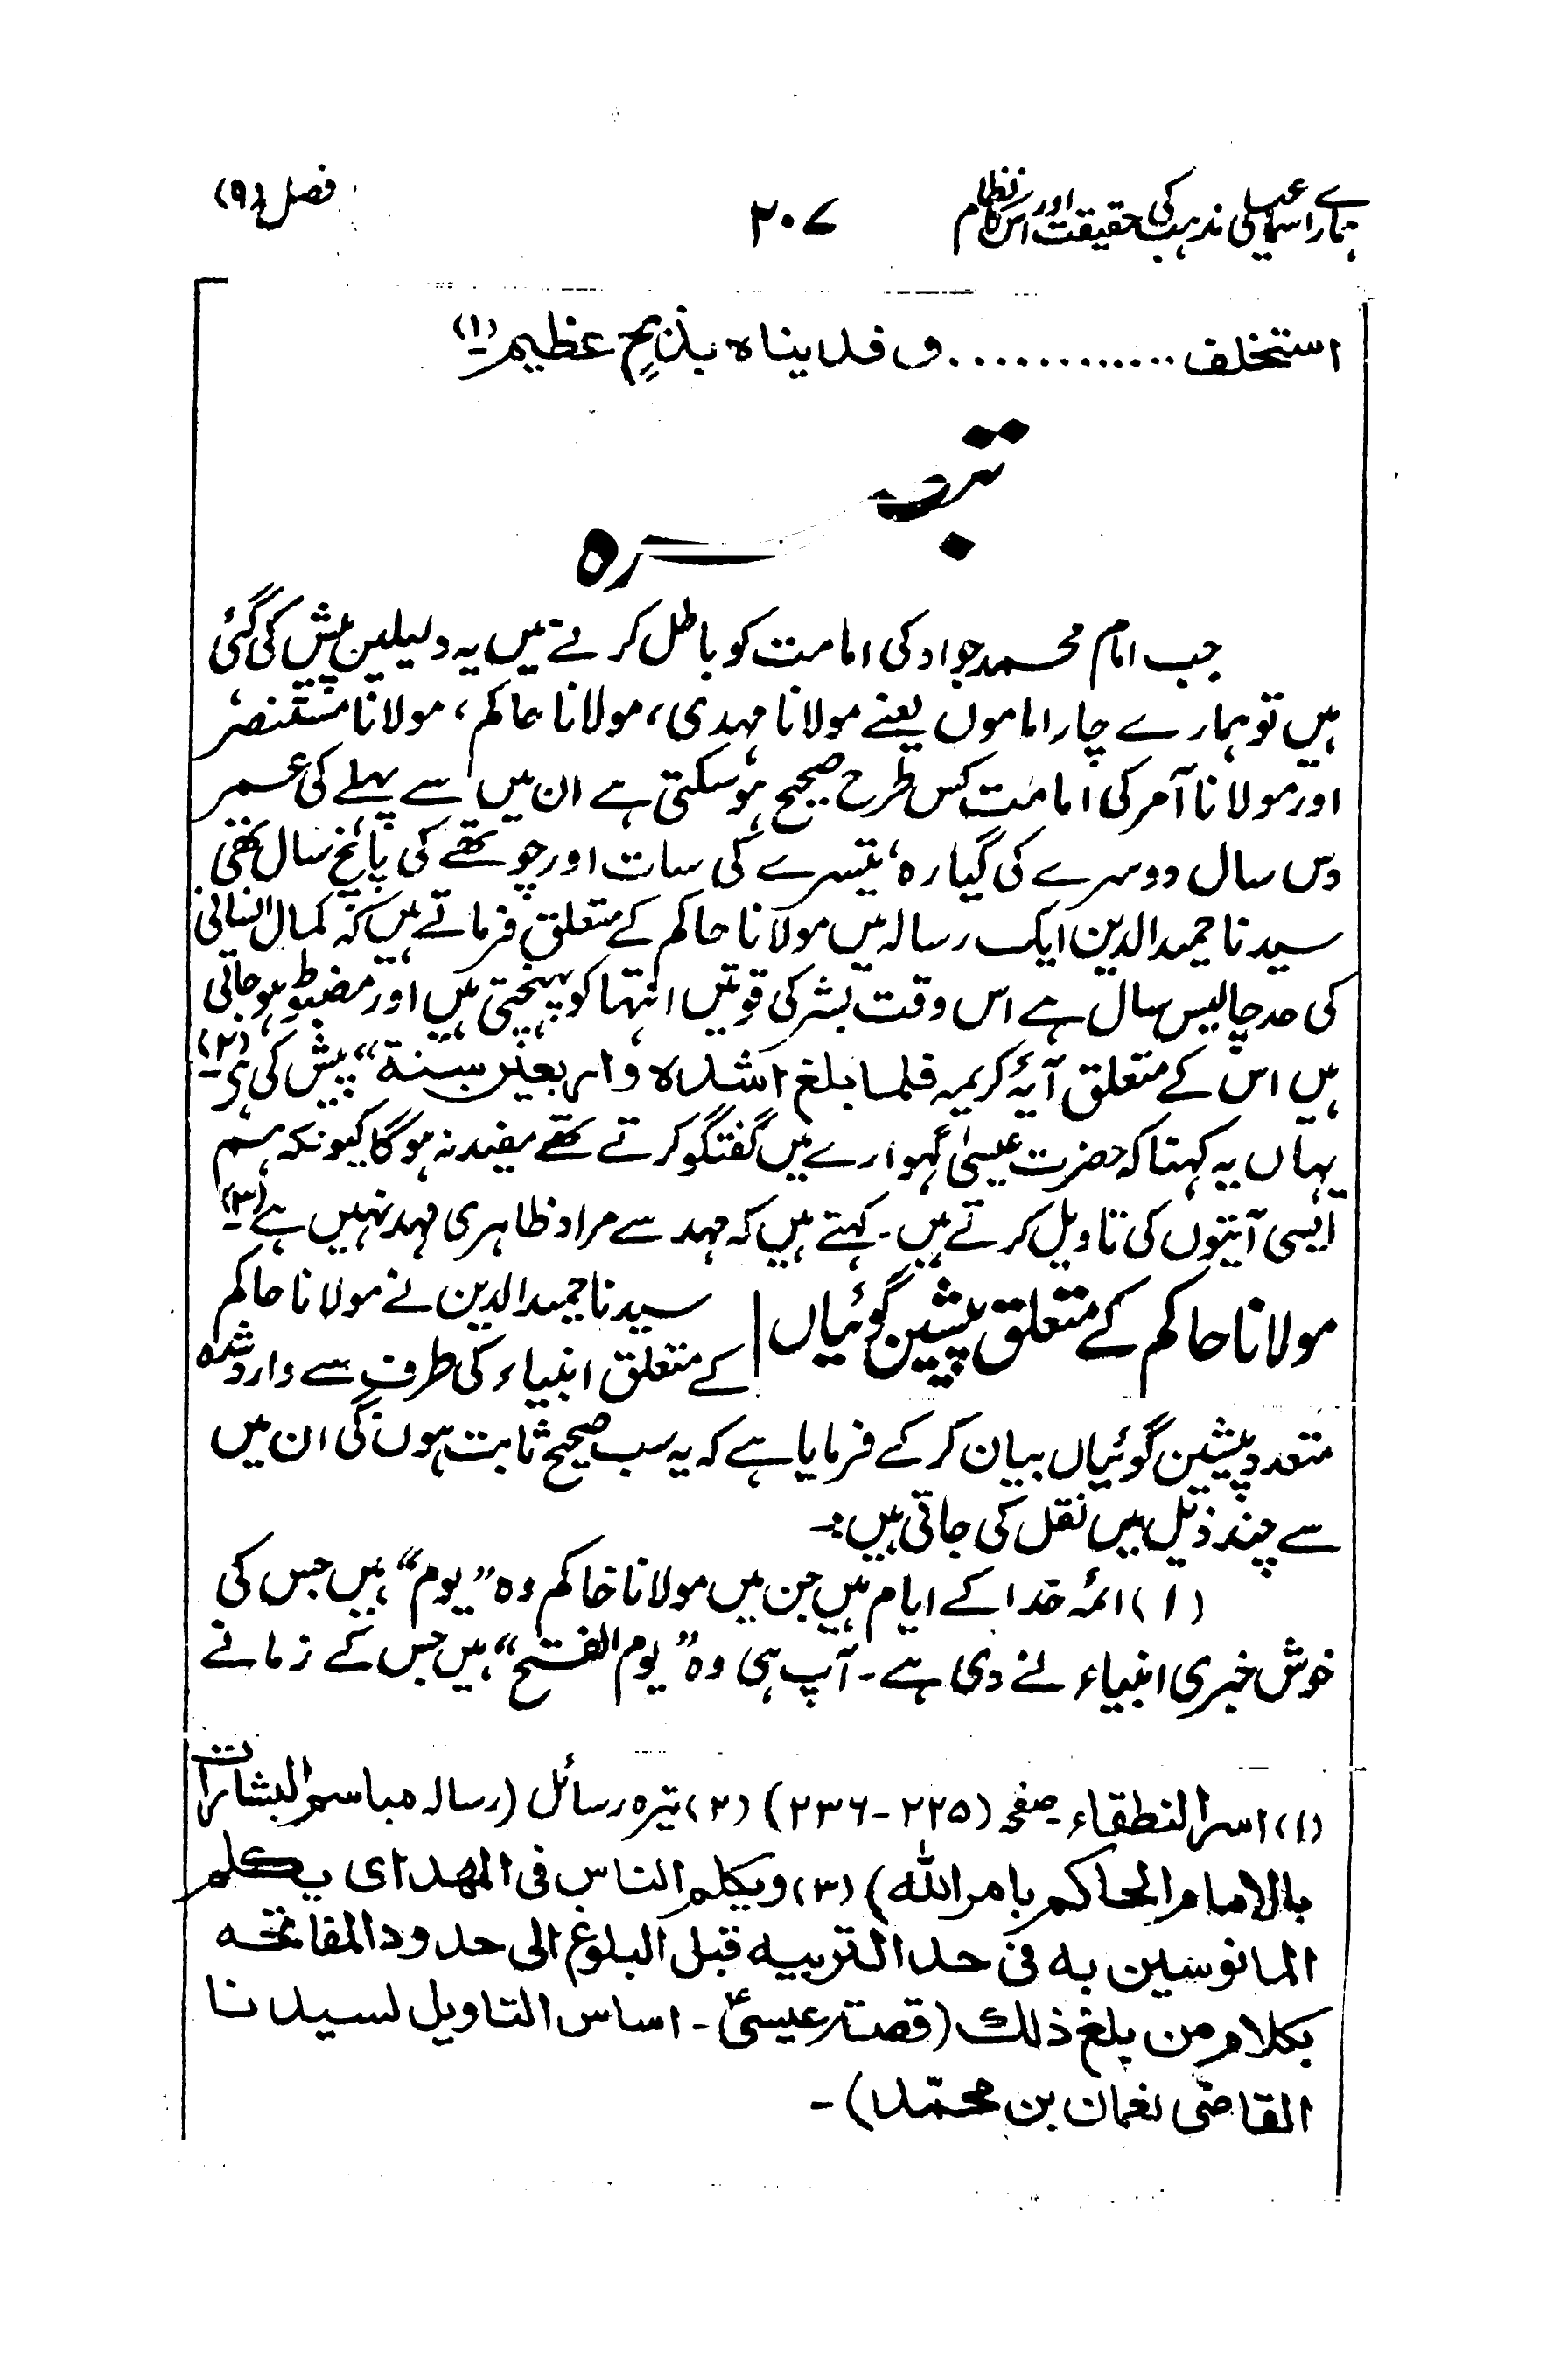 ہمارے اسماعیلی مذہب کی حقیقت اور اس کا نظام ۲۰۷ فصل (۹)
استخلف ............ و فدیناہ بذبحٍ عظیم (۱)۔
تبصرہ
جب امام محمد جواد کی امامت کو باطل کرنے میں یہ دلیلیں پیش کی گئی
ہیں تو ہمارے چار اماموں یعنے مولانا مہدی، مولانا حاکم، مولانا مستنصر
اور مولانا آمر کی امامت کس طرح صحیح ہو سکتی ہے ان میں سے پہلے کی عمر
دس سال دوسرے کی گیارہ، تیسرے کی سات اور چوتھے کی پانچ سال تھی
سیدنا حمید الدین ایک رسالہ میں مولانا حاکم کے متعلق فرماتے ہیں کہ کمال انسانی
کی حد چالیس سال ہے اس وقت بشر کی قوتیں انتہا کو پہنچتی ہیں اور مضبوط ہو جاتی
ہیں اس کے متعلق آیۂ کریمہ فلما بلغ اشدہ واربعین سنة“ پیش کی ہے (۲)۔
یہاں یہ کہنا کہ حضرت عیسیٰ گہوارے میں گفتگو کرتے تھے مفید نہ ہوگا کیونکہ ہم
ایسی آیتوں کی تاویل کرتے ہیں۔ کہتے ہیں کہ مہد سے مراد ظاہری مہد نہیں ہے (۳)۔
مولانا حاکم کے متعلق پیشین گوئیاں | سیدنا حمید الدین نے مولانا حاکم
کے متعلق انبیاء کی طرف سے وارد شدہ
متعدد پیشین گوئیاں بیان کر کے فرمایا ہے کہ یہ سب صحیح ثابت ہوں گی ان میں
سے چند ذیل میں نقل کی جاتی ہیں:۔
(۱) ائمہ خدا کے ایام ہیں جن میں مولانا حاکم وہ ”یوم“ ہیں جس کی
خوش خبری انبیاء نے دی ہے۔ آپ ہی وہ ”یوم الفتح“ ہیں جس کے زمانے
(۱) اسرار النطقاء صفحہ (۲۲۵-۲۳۶) (۲) تیرہ رسائل (رسالہ مباسم البشارات
بالامام الحاکم بامر اللہ) (۳) ویکلم الناس فی المهد ای یکلم
المانوسین به فی حد التربیه قبل البلوغ الی حدود المفاتحه
بکلام من بلغ ذلک (قصة عیسیٰؑ - اساس التاویل لسیدنا
القاضی نعمان بن محمّد) -